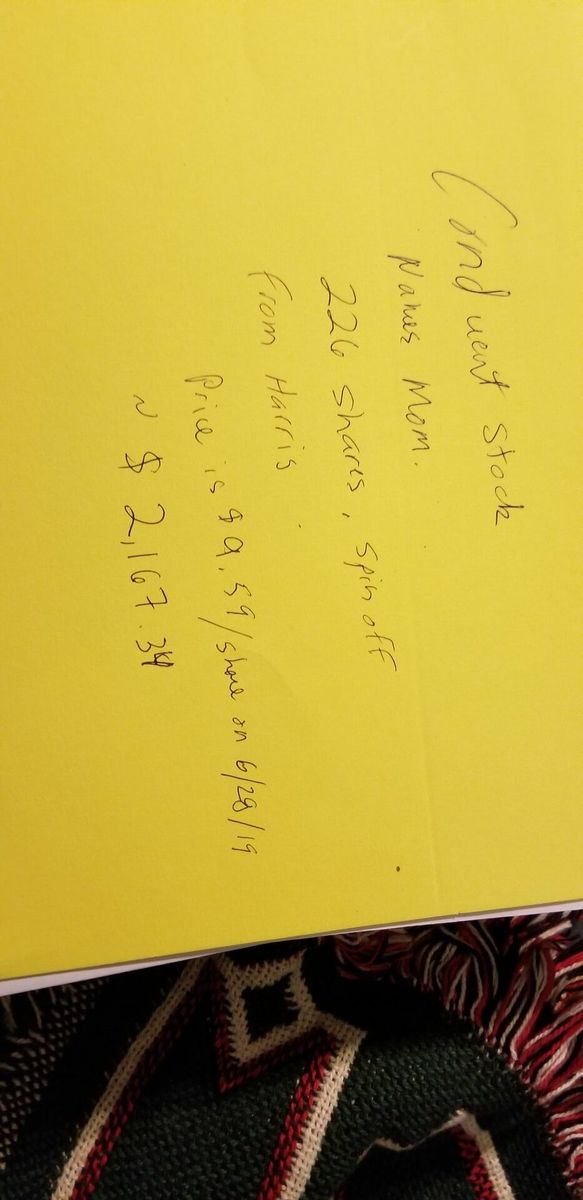 Conduent Stock
Names Mom.
226 shares, spin off
from Harris
Price is $9.59/share on 6/28/19
~ $2,167.34